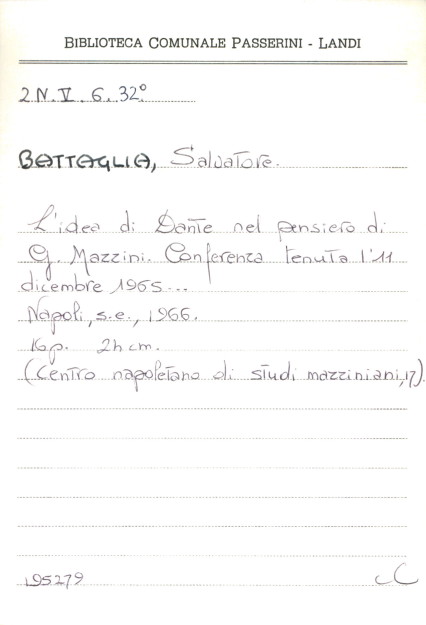 BIBLIOTECA COMUNALE PASSERINI - LANDI
2 N. V. 6. 32°
BATTAGLIA, Salvatore.
L'idea di Dante nel pensiero di
G. Mazzini. Conferenza tenuta l'11
dicembre 1965...
Napoli, s.e., 1966.
16 p. 24 cm.
(Centro napoletano di studi mazziniani, 17).
195279
CC